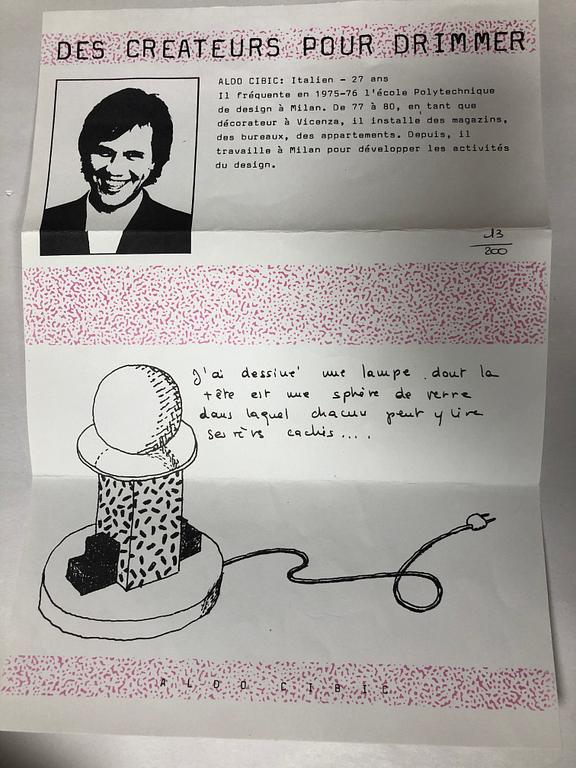 DES CREATEURS POUR DRIMMER
ALDO CIBIC: Italien - 27 ans
Il fréquente en 1975-76 l'école Polytechnique
de design à Milan. De 77 à 80, en tant que
décorateur à Vicenza, il installe des magazins,
des bureaux, des appartements. Depuis, il
travaille à Milan pour développer les activités
du design.
13
200
J'ai dessiné une lampe dont la
tête est une sphère de verre
dans laquel chacun peut y lire
ses rêvs cachés....
ALDO CIBIC